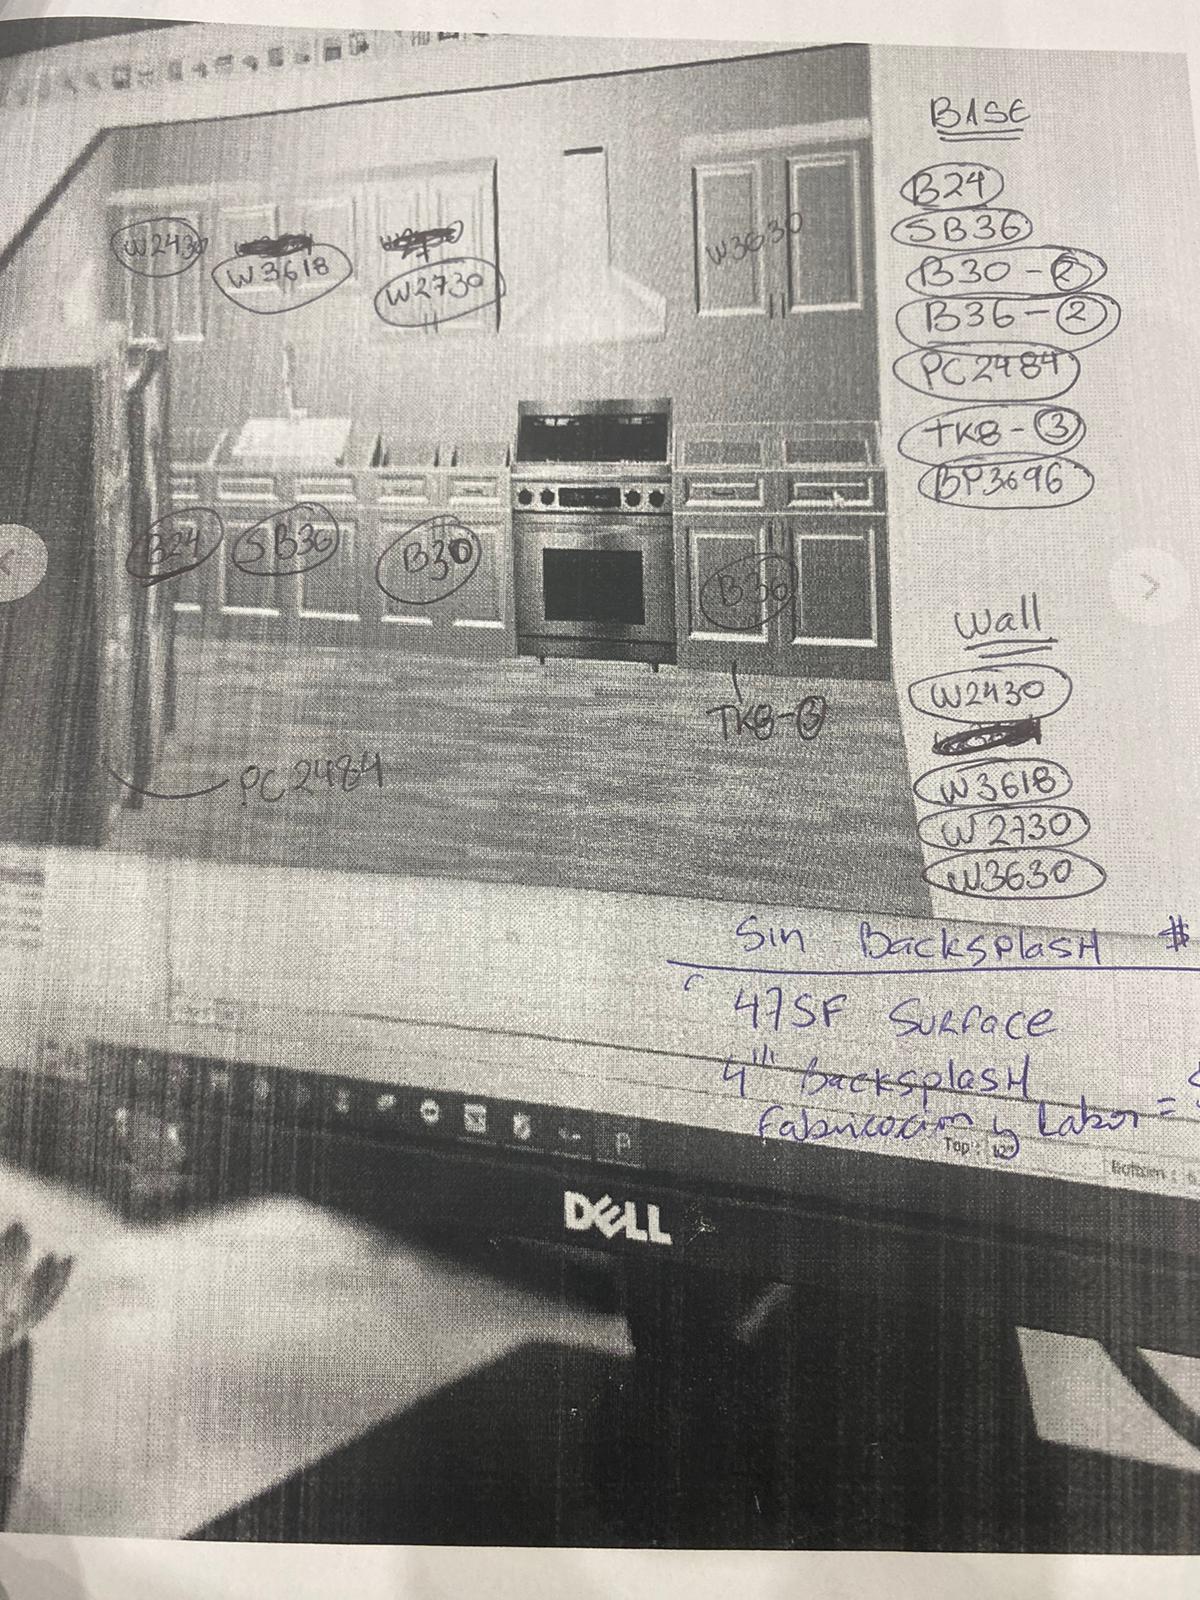 BASE
B24
SB36
B30-2
B36-2
PC2484
TK8-3
BP3696
W2430
W3618
W2730
W3630
B24
SB36
B30
B36
TK8-3
PC2484
Wall
W2430
W3618
W2730
W3630
Sin BacksplasH $
47SF Surface
4" BacksplasH
Fabricacion y Labor =
Top : 12
Bottom :
DELL